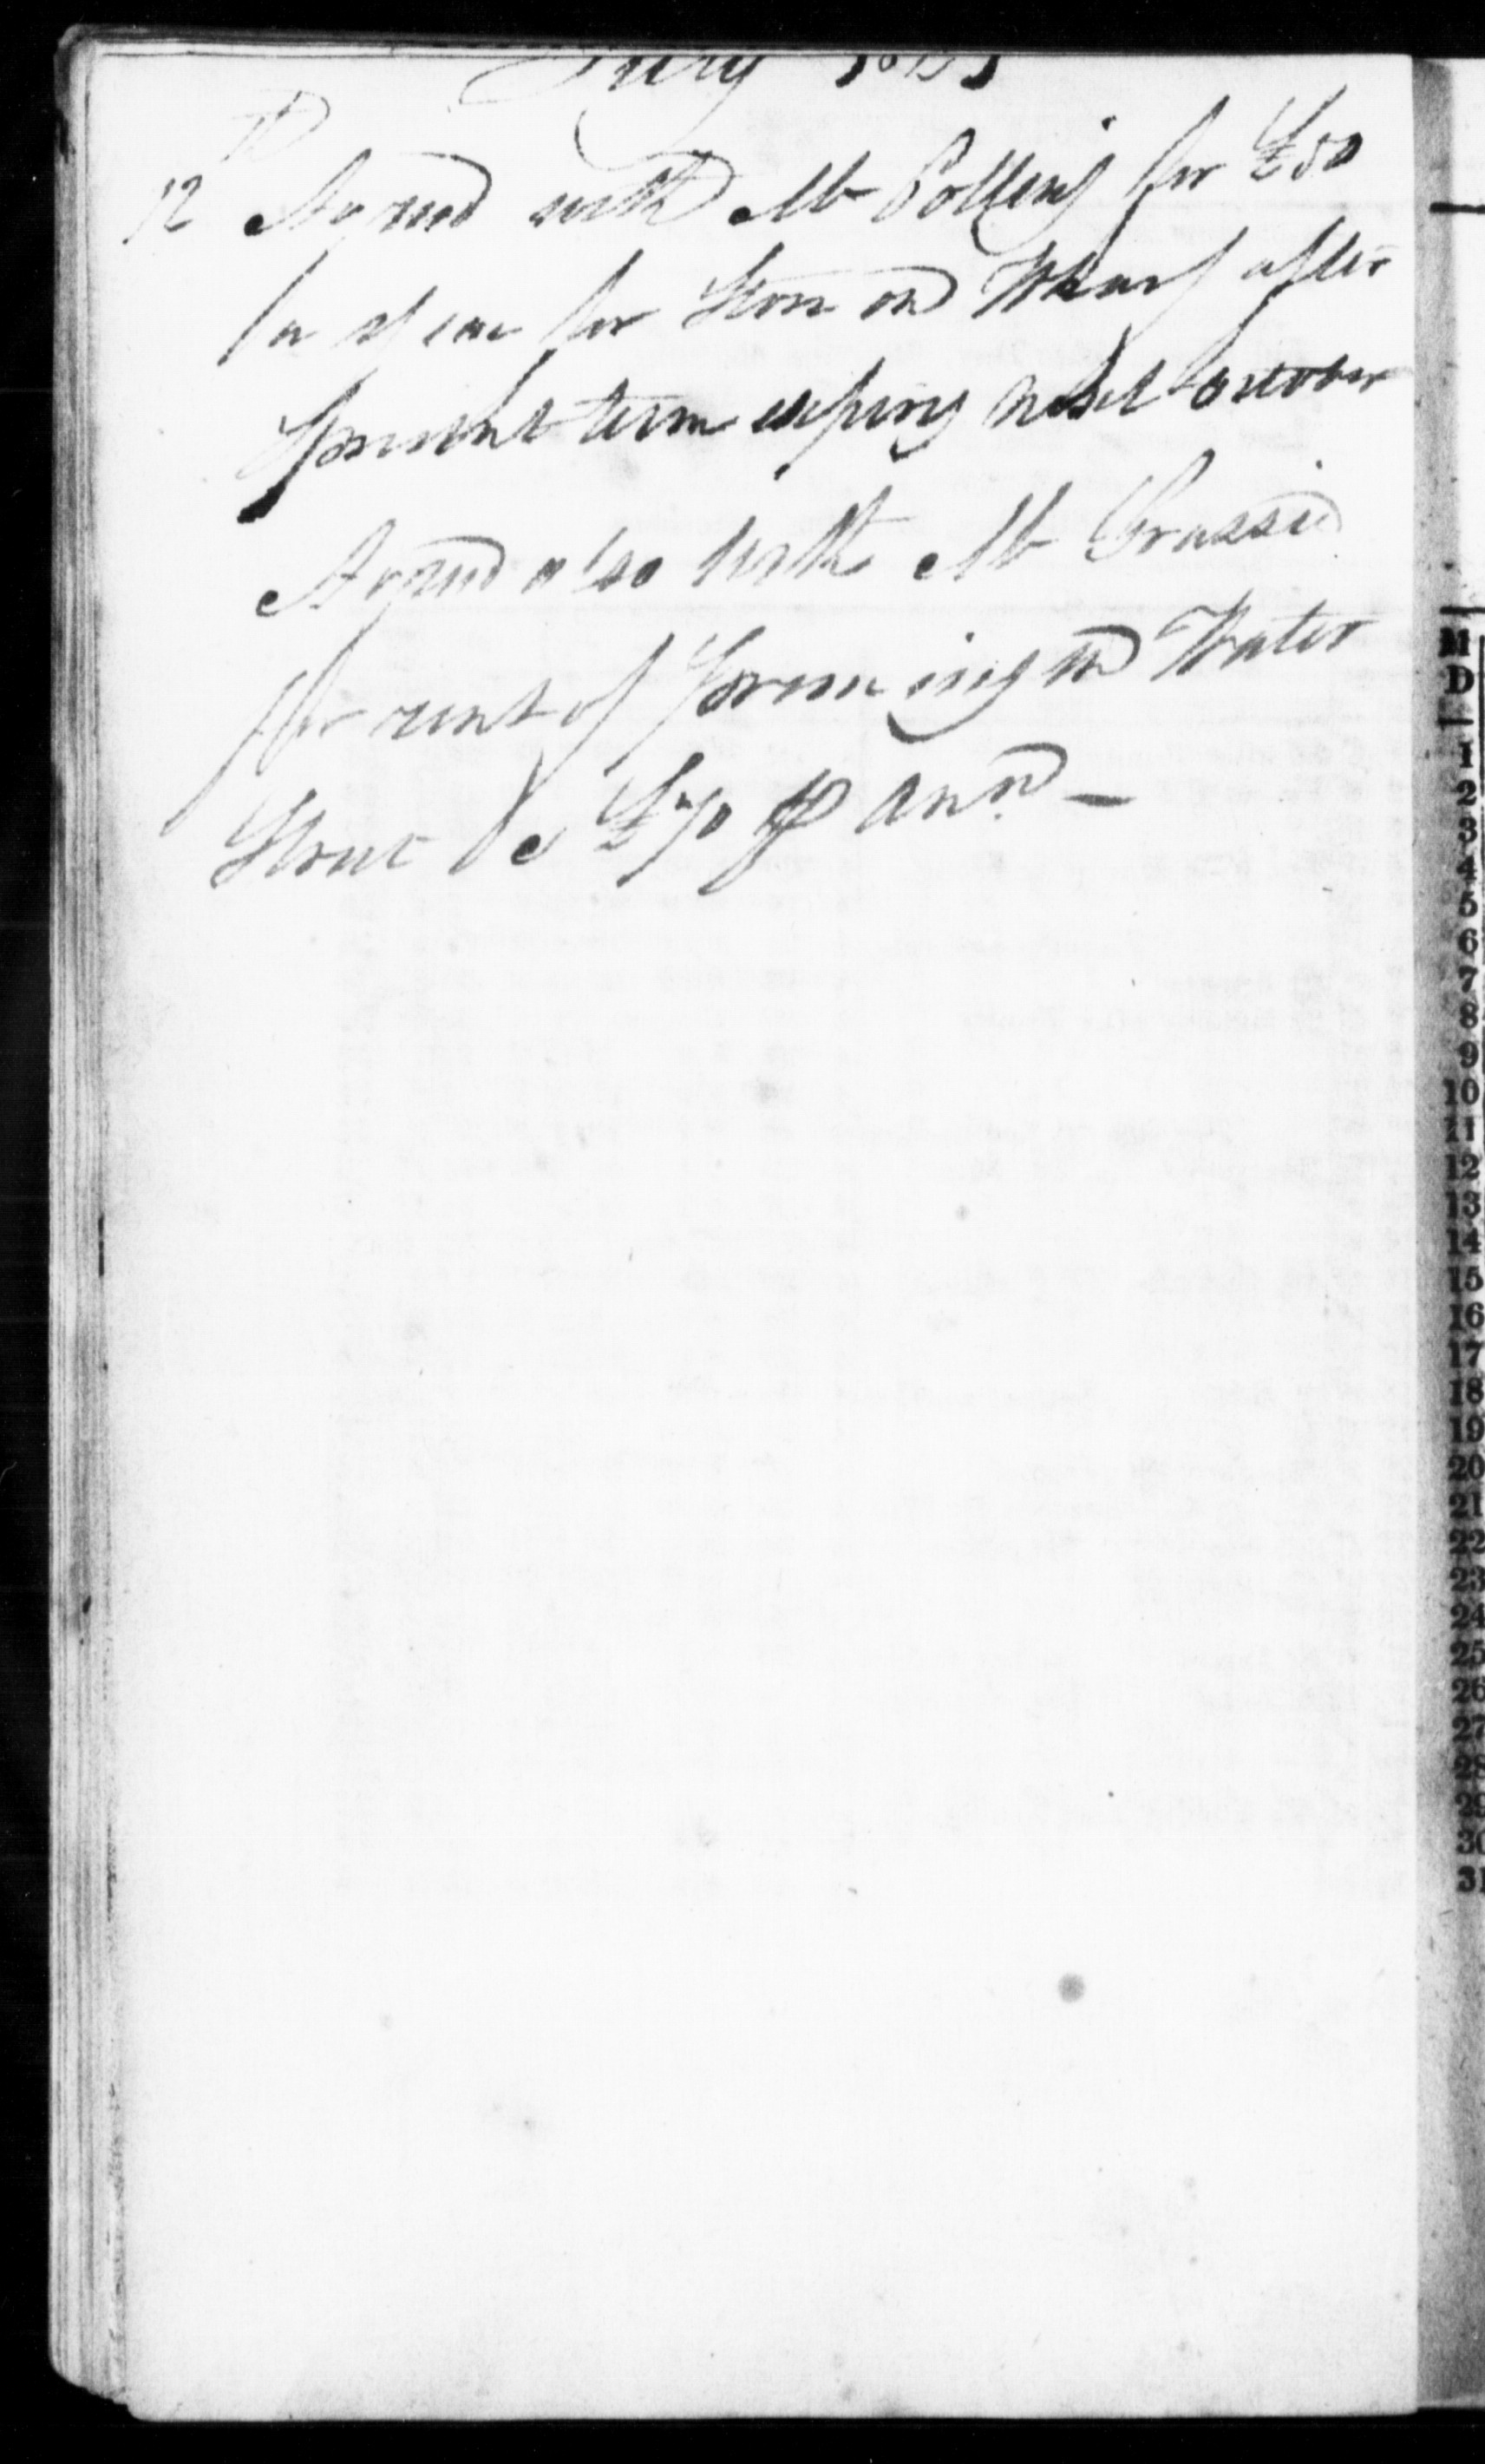 July
12 Agreed with Mr Collins for £50
for Store and Wharf after
present term expiring next October
Agreed also with Mr Grassie
for rent of premises in Water
Street be £70 ⅌ Ann –
M
D
1
2
3
4
5
6
7
8
9
10
11
12
13
14
15
16
17
18
19
20
21
22
23
24
25
26
27
28
29
30
31